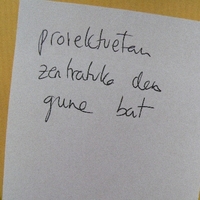 proiektuetan
zentratuko den
gune bat